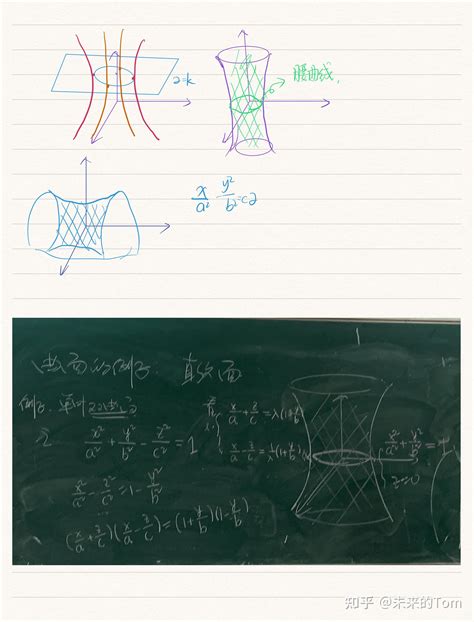 z=k
腰曲线.
x/a² y²/b²=cz
曲面的例子: 直纹面
例子. 单叶双曲面
x²/a² + y²/b² - z²/c² = 1
x²/a² - z²/c² = 1 - y²/b²
(x/a + z/c)(x/a - z/c) = (1 + y/b)(1 - y/b)
x/a + z/c = λ(1+
x/a - z/c = 1/λ(1
x²/a² + y²/b² = 1
z=0
知乎 @未来的Tom